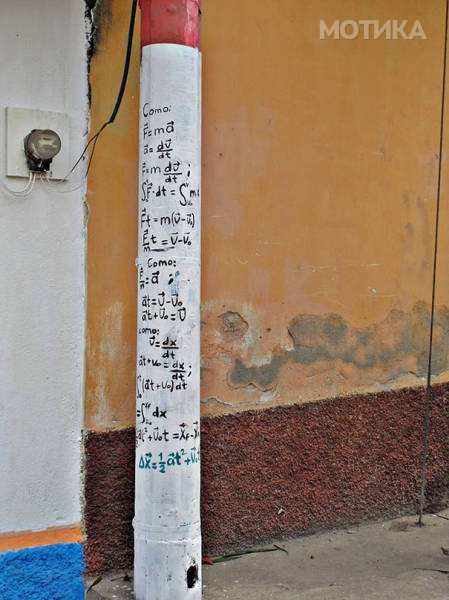 МОТИКА
Como:
F⃗=ma⃗
a⃗=dv⃗/dt
F⃗=m dv⃗/dt;
∫F⃗·dt=∫m
F⃗t=m(v⃗-v⃗₀)
F⃗t/m=v⃗-v⃗₀
Como:
F⃗/m=a⃗;
a⃗t=v⃗-v⃗₀
a⃗t+v⃗₀=v⃗
como:
v⃗=dx⃗/dt
a⃗t+v₀=dx⃗/dt;
∫(a⃗t+v₀)dt
=∫dx
t²+v⃗₀t=x⃗F-x⃗
Δx⃗=½a⃗t²+v⃗₀t